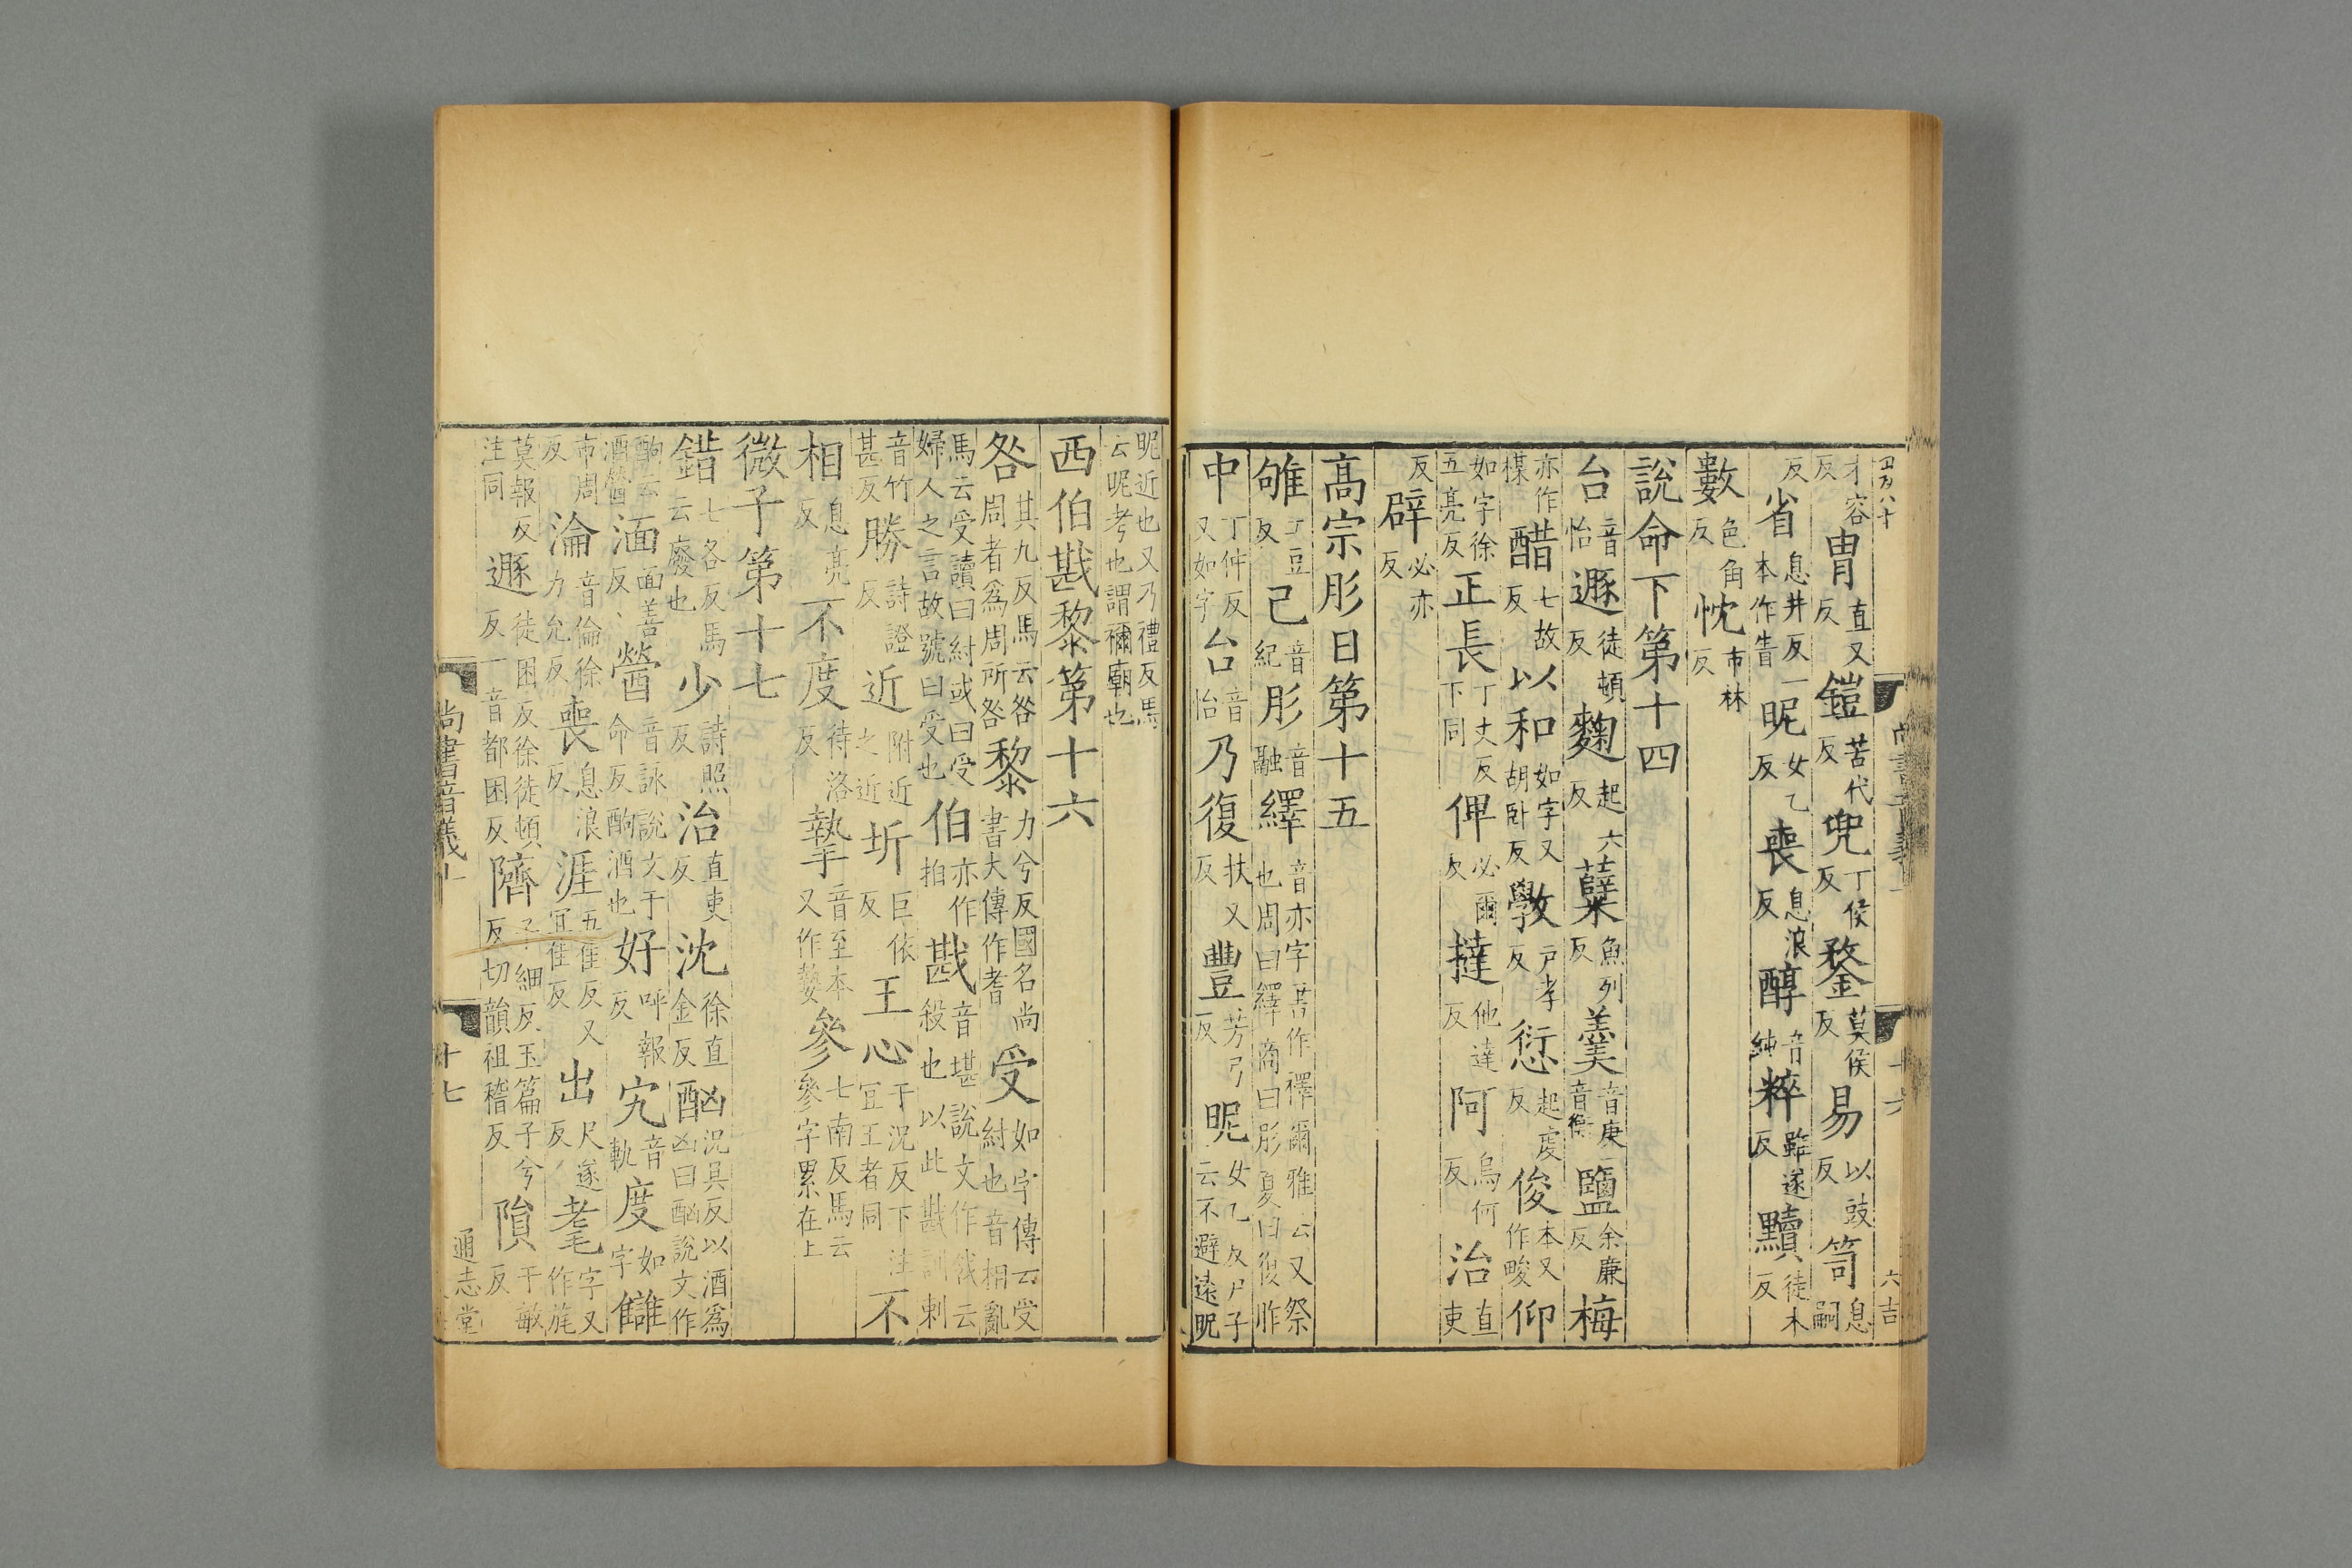 才容反胄直又反鎧苦代反兜丁侯反鍪莫侯反易以豉反笥息嗣
反省息井反一本作眚昵女乙反喪息浪反醇音純粹雖遂反黷徒木反
數色角反忱市林反
說命下第十四
台音怡遯徒頓反麴起六反蘗魚列反羹音庚一音衡鹽余廉反梅
亦作楳醋七故反以和如字又胡卧反斆戸孝反愆起虔反俊本又作畯仰
如字徐五亮反正長丁丈反下同俾必爾反撻他達反阿烏何反治直吏
反辟必亦反
高宗肜日第十五
雊工豆反己音紀肜音融繹音亦字書作禪爾雅云又祭也周曰繹商曰肜夏曰復胙
中丁仲反又如字台音怡乃復扶又反豐芳弓反昵女乙反尸子云不避遠昵
昵近也又乃禮反馬云昵考也謂禰廟也
西伯戡黎第十六
咎其九反馬云咎周者爲周所咎黎力兮反國名尚書大傳作耆受如字傳云受紂也音相亂
馬云受讀曰紂或曰受婦人之言故號曰受也伯亦作拍戡音堪說文作㦰云殺也以此戡訓刺
音竹甚反勝詩證反近附近之近圻巨依反王心于況反下注宜王者同不
相息亮反不度待洛反摯音至本又作㜪參七南反馬云參字累在上
微子第十七
錯七各反馬云廢也少詩照反治直吏反沈徐直金反酗況具反以酒爲凶曰酗說文作
酌云酒醟湎面善反醟音詠說文于命反酌酒也好呼報反宄音軌度如字讎
市周反淪音倫徐力允反喪息浪反涯五佳反又宜佳反出尺遂反耄字又作旄
莫報反注同遯徒困反徐徒頓反一音都困反隮子細反玉篇子兮反切韻祖稽反隕于敏反
尚書音義上
十七
通志堂
十六
六吉